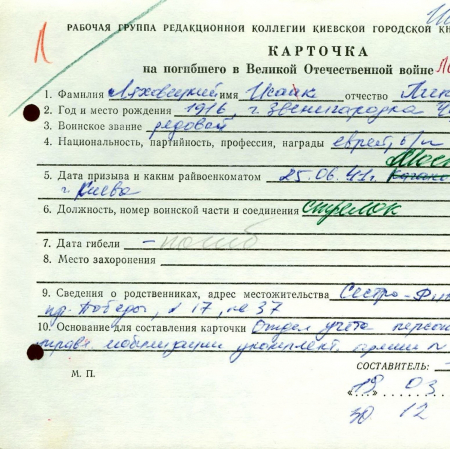 Л
РАБОЧАЯ ГРУППА РЕДАКЦИОННОЙ КОЛЛЕГИИ КИЕВСКОЙ ГОРОДСКОЙ КН
КАРТОЧКА
на погибшего в Великой Отечественной войне
1. Фамилия Ляховецкий имя Исаак отчество
2. Год и место рождения 1916, г. Звенигородка
3. Воинское звание рядовой
4. Национальность, партийность, профессия, награды еврей, б/п
5. Дата призыва и каким райвоенкоматом 25.06.41г.
г. Киева
6. Должность, номер воинской части и соединения стрелок
7. Дата гибели – погиб
8. Место захоронения
9. Сведения о родственниках, адрес местожительства Сестра -
пр. Победы, 17, 37
10. Основание для составления карточки Отдел учета персон
мобилизации укомплект. армии
СОСТАВИТЕЛЬ:
М. П.
"19" 03
30 12